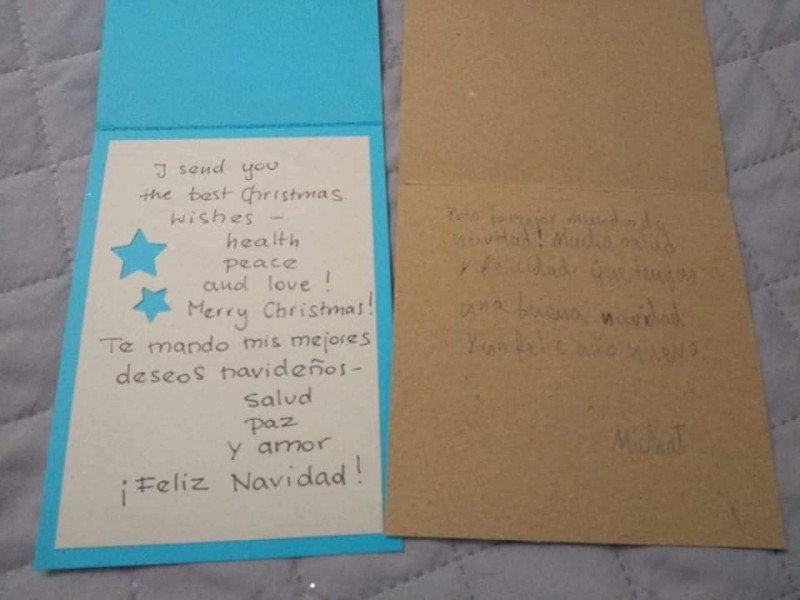 I send you
the best Christmas
wishes -
health
peace
and love!
Merry Christmas!
Te mando mis mejores
deseos navideños-
salud
paz
y amor
¡Feliz Navidad!
navidad! Mucha salud
y felicidad. Que tengas
una buena navidad
Y un feliz año nuevo.